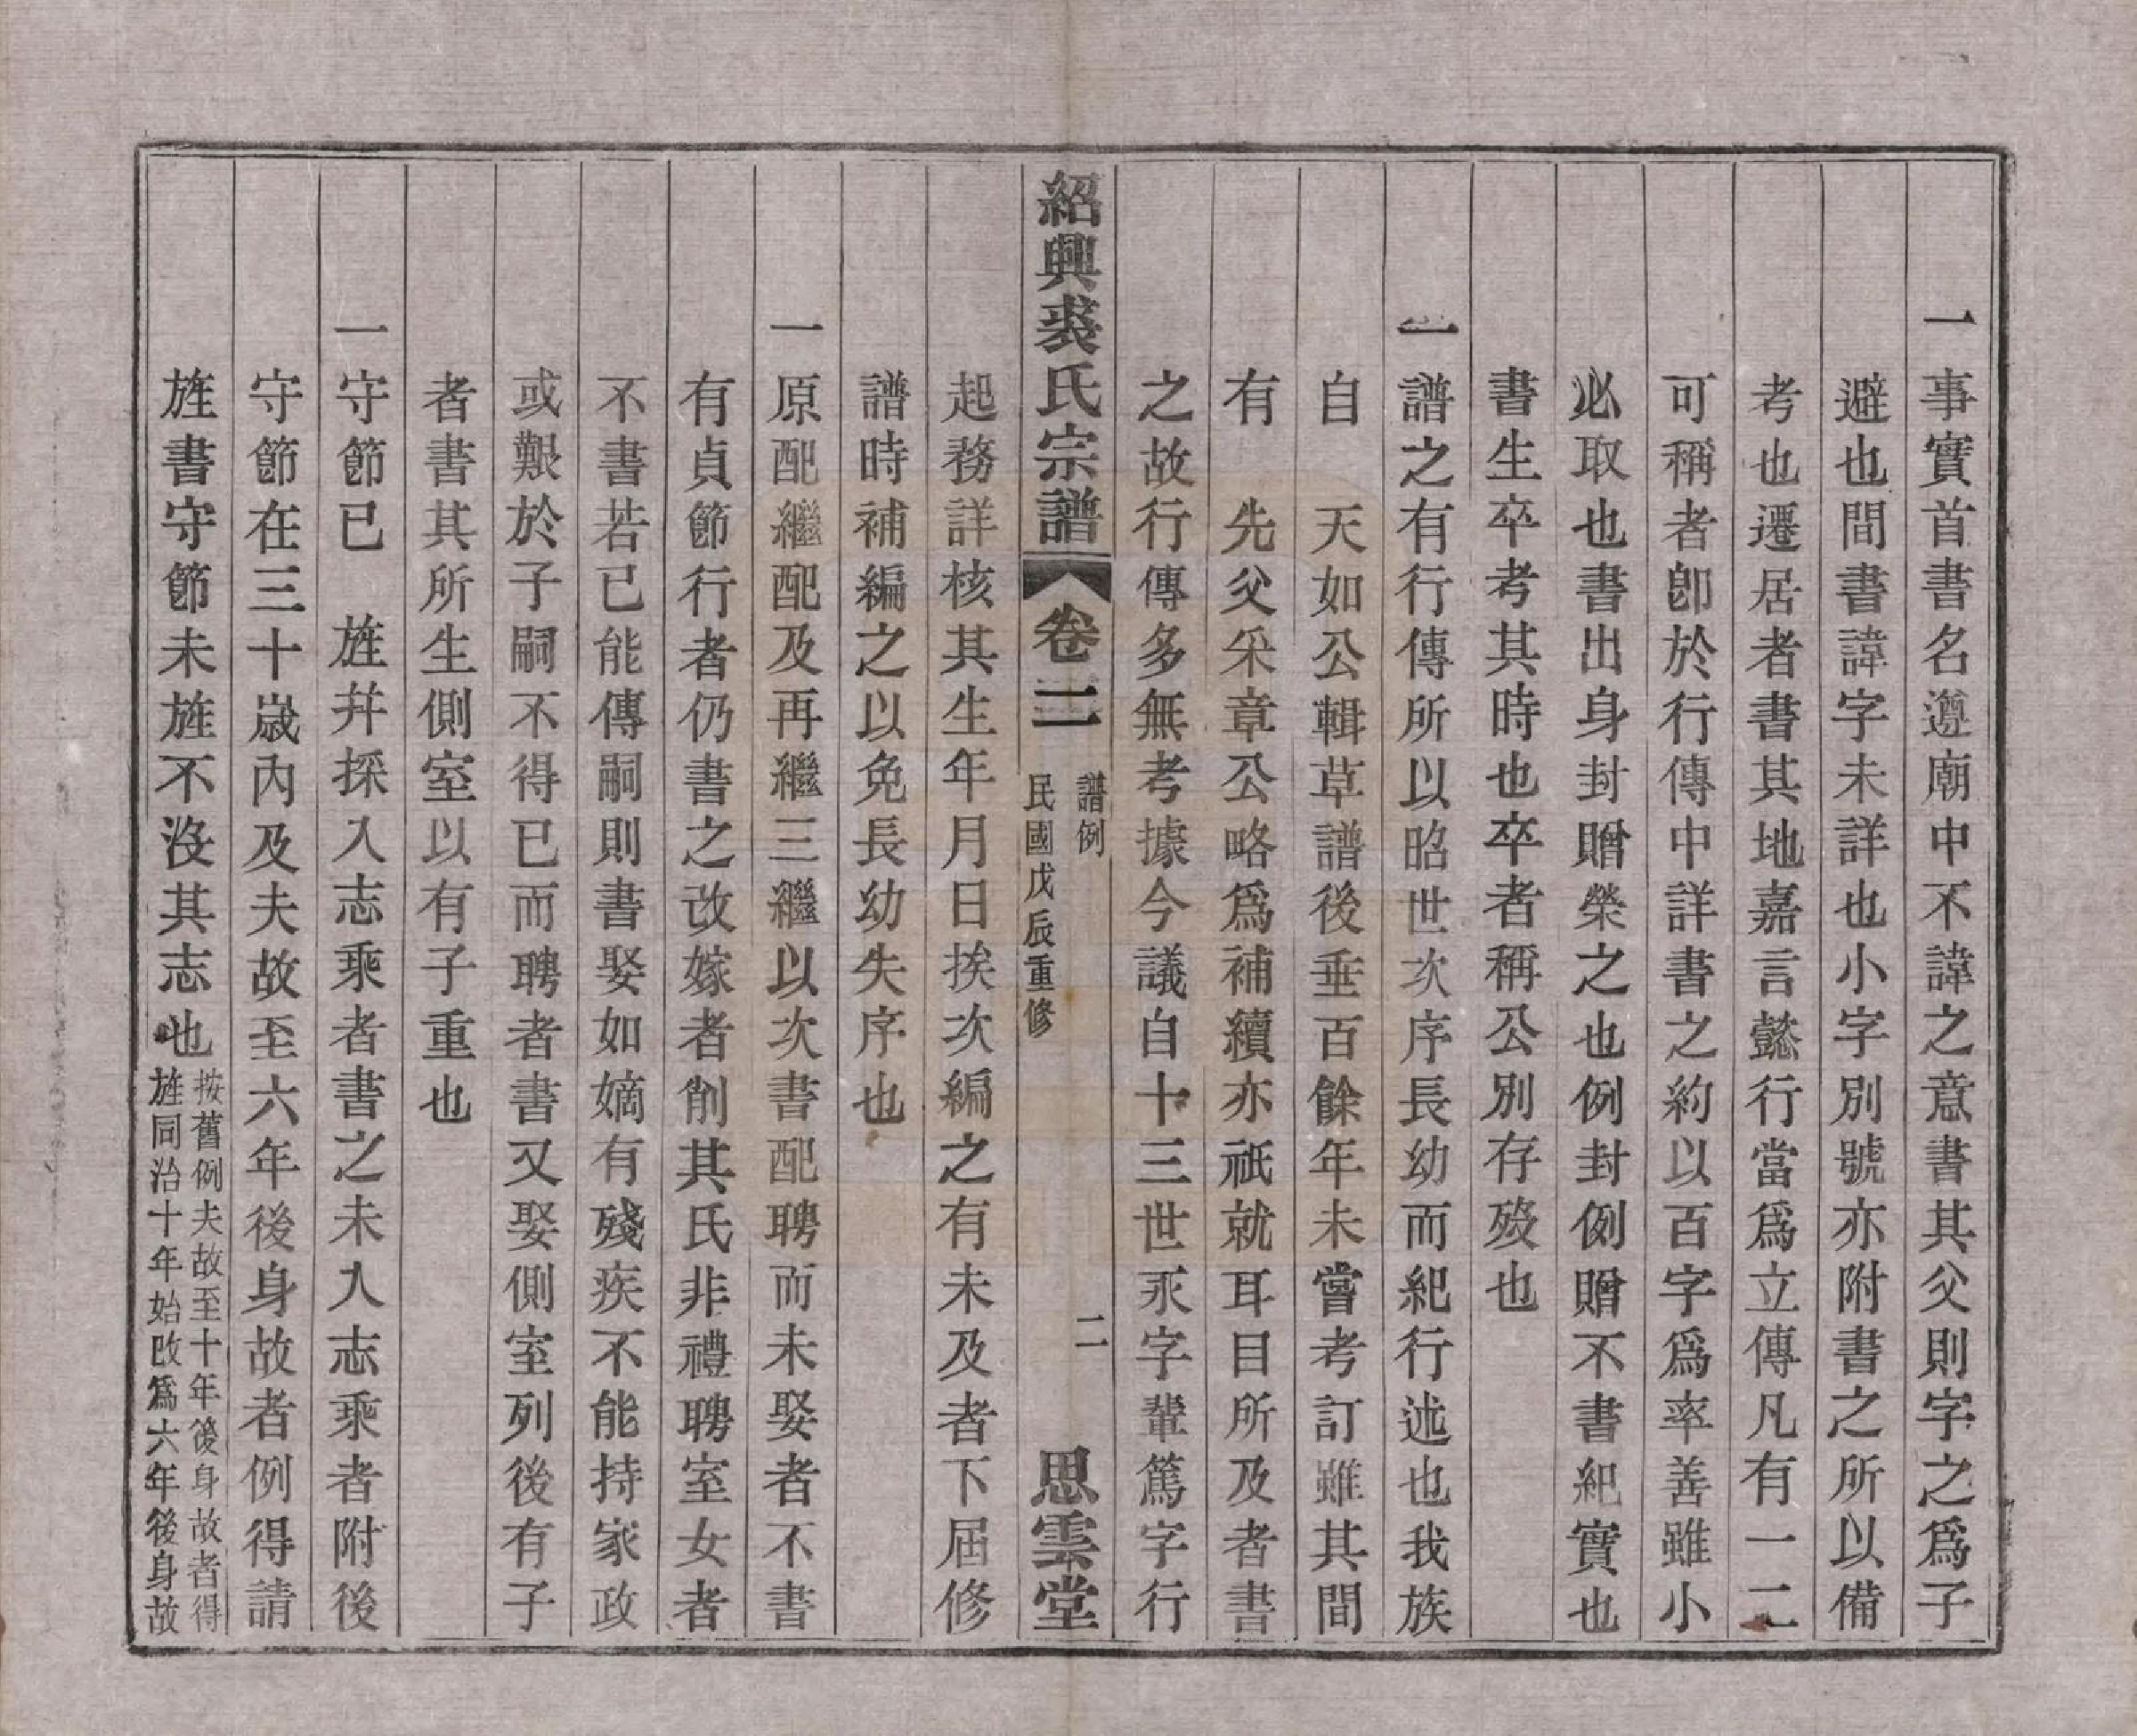 一事實首書名遵廟中不諱之意書其父則字之爲子
避也間書諱字未詳也小字別號亦附書之所以備
考也遷居者書其地嘉言懿行當爲立傳凡有一二
可稱者卽於行傳中詳書之約以百字爲率善雖小
必取也書出身封贈榮之也例封例贈不書紀實也
書生卒考其時也卒者稱公別存歿也
一譜之有行傳所以昭世次序長幼而紀行述也我族
自　天如公輯草譜後垂百餘年未嘗考訂雖其間
有　先父采章公略爲補續亦祇就耳目所及者書
之故行傳多無考據今議自十三世永字輩篤字行
紹興裘氏宗譜　卷二　譜例　民國戊辰重修　二　思雲堂
起務詳核其生年月日挨次編之有未及者下屆修
譜時補編之以免長幼失序也
一原配繼配及再繼三繼以次書配聘而未娶者不書
有貞節行者仍書之改嫁者削其氏非禮聘室女者
不書若已能傳嗣則書娶如嫡有殘疾不能持家政
或艱於子嗣不得已而聘者書又娶側室列後有子
者書其所生側室以有子重也
一守節已　旌幷採入志乘者書之未入志乘者附後
守節在三十歲內及夫故至六年後身故者例得請
旌書守節未旌不沒其志也按舊例夫故至十年後身故者得
旌同治十年始改爲六年後身故